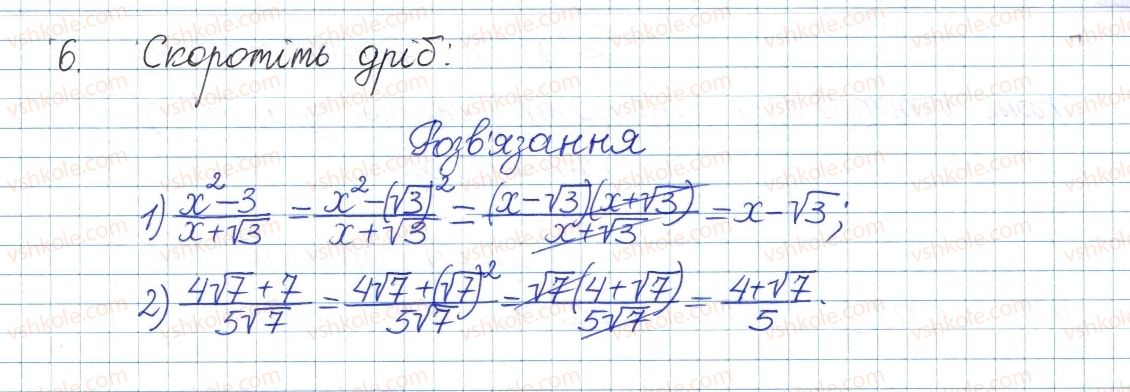 6. Скоротіть дріб:
Розв'язання
1) \frac{x^2-3}{x+\sqrt{3}} = \frac{x^2-(\sqrt{3})^2}{x+\sqrt{3}} = \frac{(x-\sqrt{3})(x+\sqrt{3})}{x+\sqrt{3}} = x-\sqrt{3};
2) \frac{4\sqrt{7}+7}{5\sqrt{7}} = \frac{4\sqrt{7}+(\sqrt{7})^2}{5\sqrt{7}} = \frac{\sqrt{7}(4+\sqrt{7})}{5\sqrt{7}} = \frac{4+\sqrt{7}}{5}.